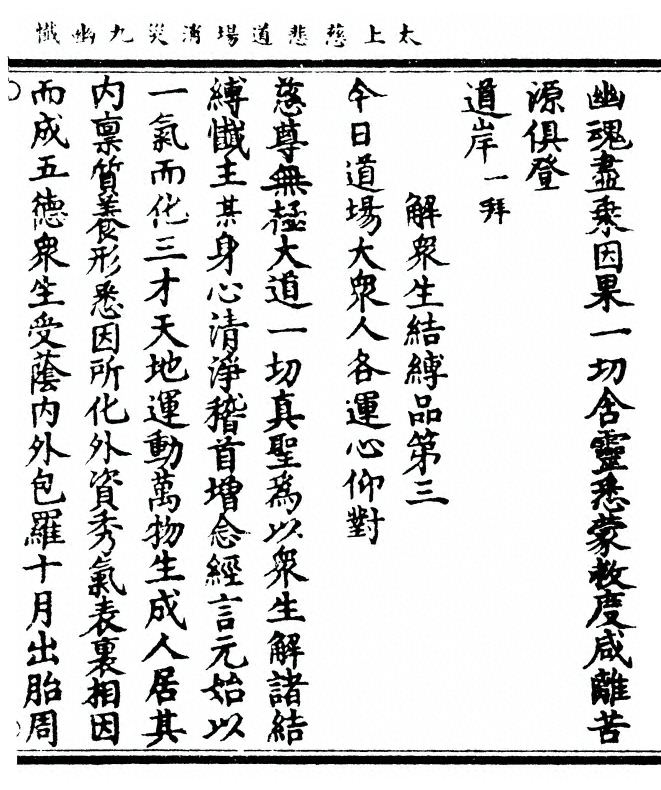 太上慈悲道場消災九幽懺
幽魂盡乘因果一切含靈悉蒙救度咸離苦
源俱登
道岸一拜
解衆生結縛品第三
今日道場大衆人各運心仰對
慈尊無極大道一切真聖爲以衆生解諸結
縛懺主某身心清淨稽首增念經言元始以
一氣而化三才天地運動萬物生成人居其
内稟質養形悉因所化外資秀氣表裏相因
而成五德衆生受蔭内外包羅十月出胎周